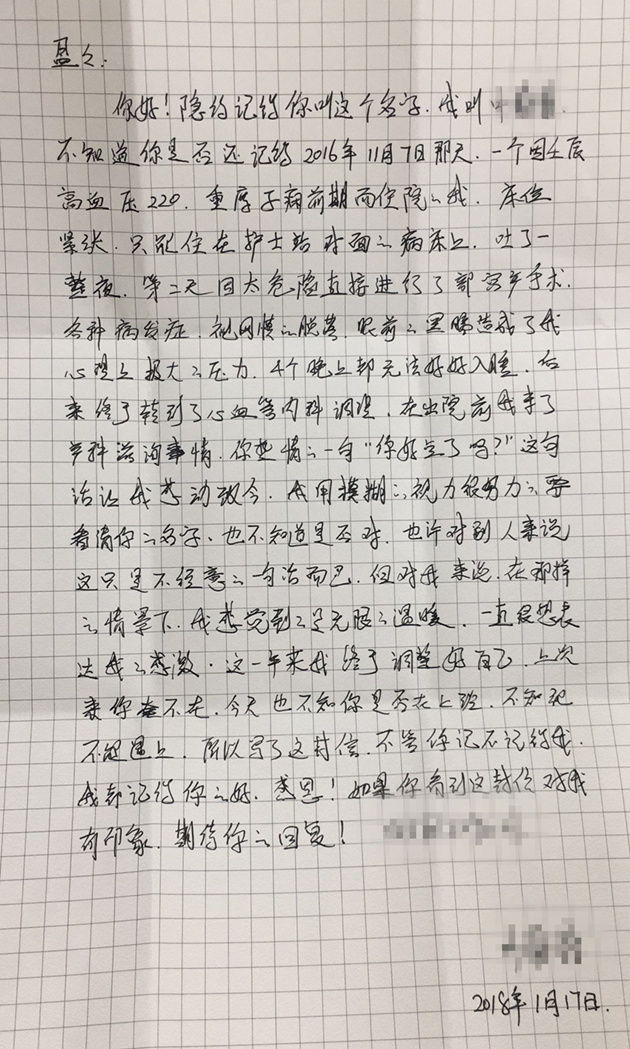 盈之:
你好!隐约记得你叫这个名字.我叫
不知道你是否还记得2016年11月7日那天.一个因妊辰
高血压220.重度子痫前期而住院之我.床位
紧张.只能住在护士站对面之病床上.吐了一
整夜.第二天因太危险直接进行了剖宫产手术.
各种病发症.视网膜之脱落.眼前之黑暗造成了我
心理上极大之压力.4个晚上都无法好好入睡.后
来终于转到了心血管内科调理.在出院前我来了
产科咨询事情.你热情之一句“你好点了吗?”这句
话让我感动致今.我用模糊之视力很努力之
看清你之名字、也不知道是否对.也许对别人来说
这只是不经意之一句话而已.但对我来说.在那样
之情景下.我感觉到之是无限之温暖.一直很想表
达我之感激.这一年来我终于调整好自己.上次
来你不在.今天也不知你是否在上班.不知现
不能遇上.所以写了这封信.不管你记不记得我.
我却记得你之好.感恩!如果你看到这封信对我
有印象.期待你之回复!
2018年1月17日.